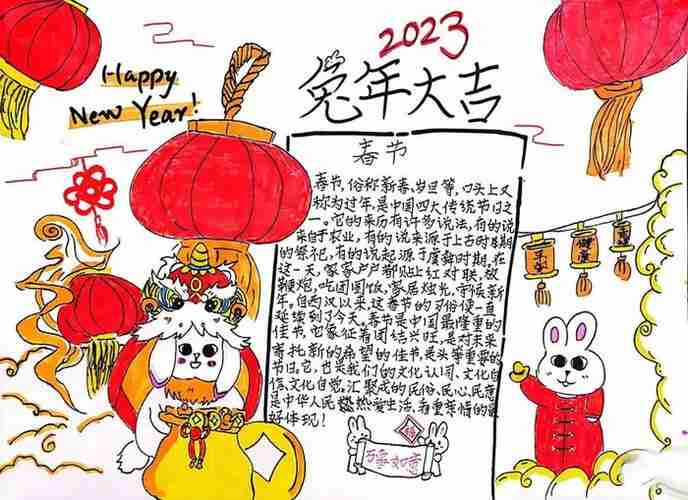 2023
Happy
New Year!
兔年大吉
春节
春节,俗称新春、岁旦等,口头上又
称为过年,是中国四大传统节日之
一。它的来历有许多说法,有的说
来自于农业,有的说来源于上古时期
的祭祀,有的说起源于虞舜时期,在
这一天,家家户户都贴上红对联,放
鞭炮,吃团圆饭,家居烛光,守候新
年。自西汉以来这春节的习俗便一直
延续到了今天。春节是中国最隆重的
佳节,它象征着团结兴旺,是对未来
寄托新的希望的佳书,是头等重要的
节日,它,也是我们的文化认同、文化自
信、文化自觉,汇聚成的民俗、民心、民意
是中华人民燃热爱生活,看重亲情的最
好体现!
平安
健康
福
万事如意